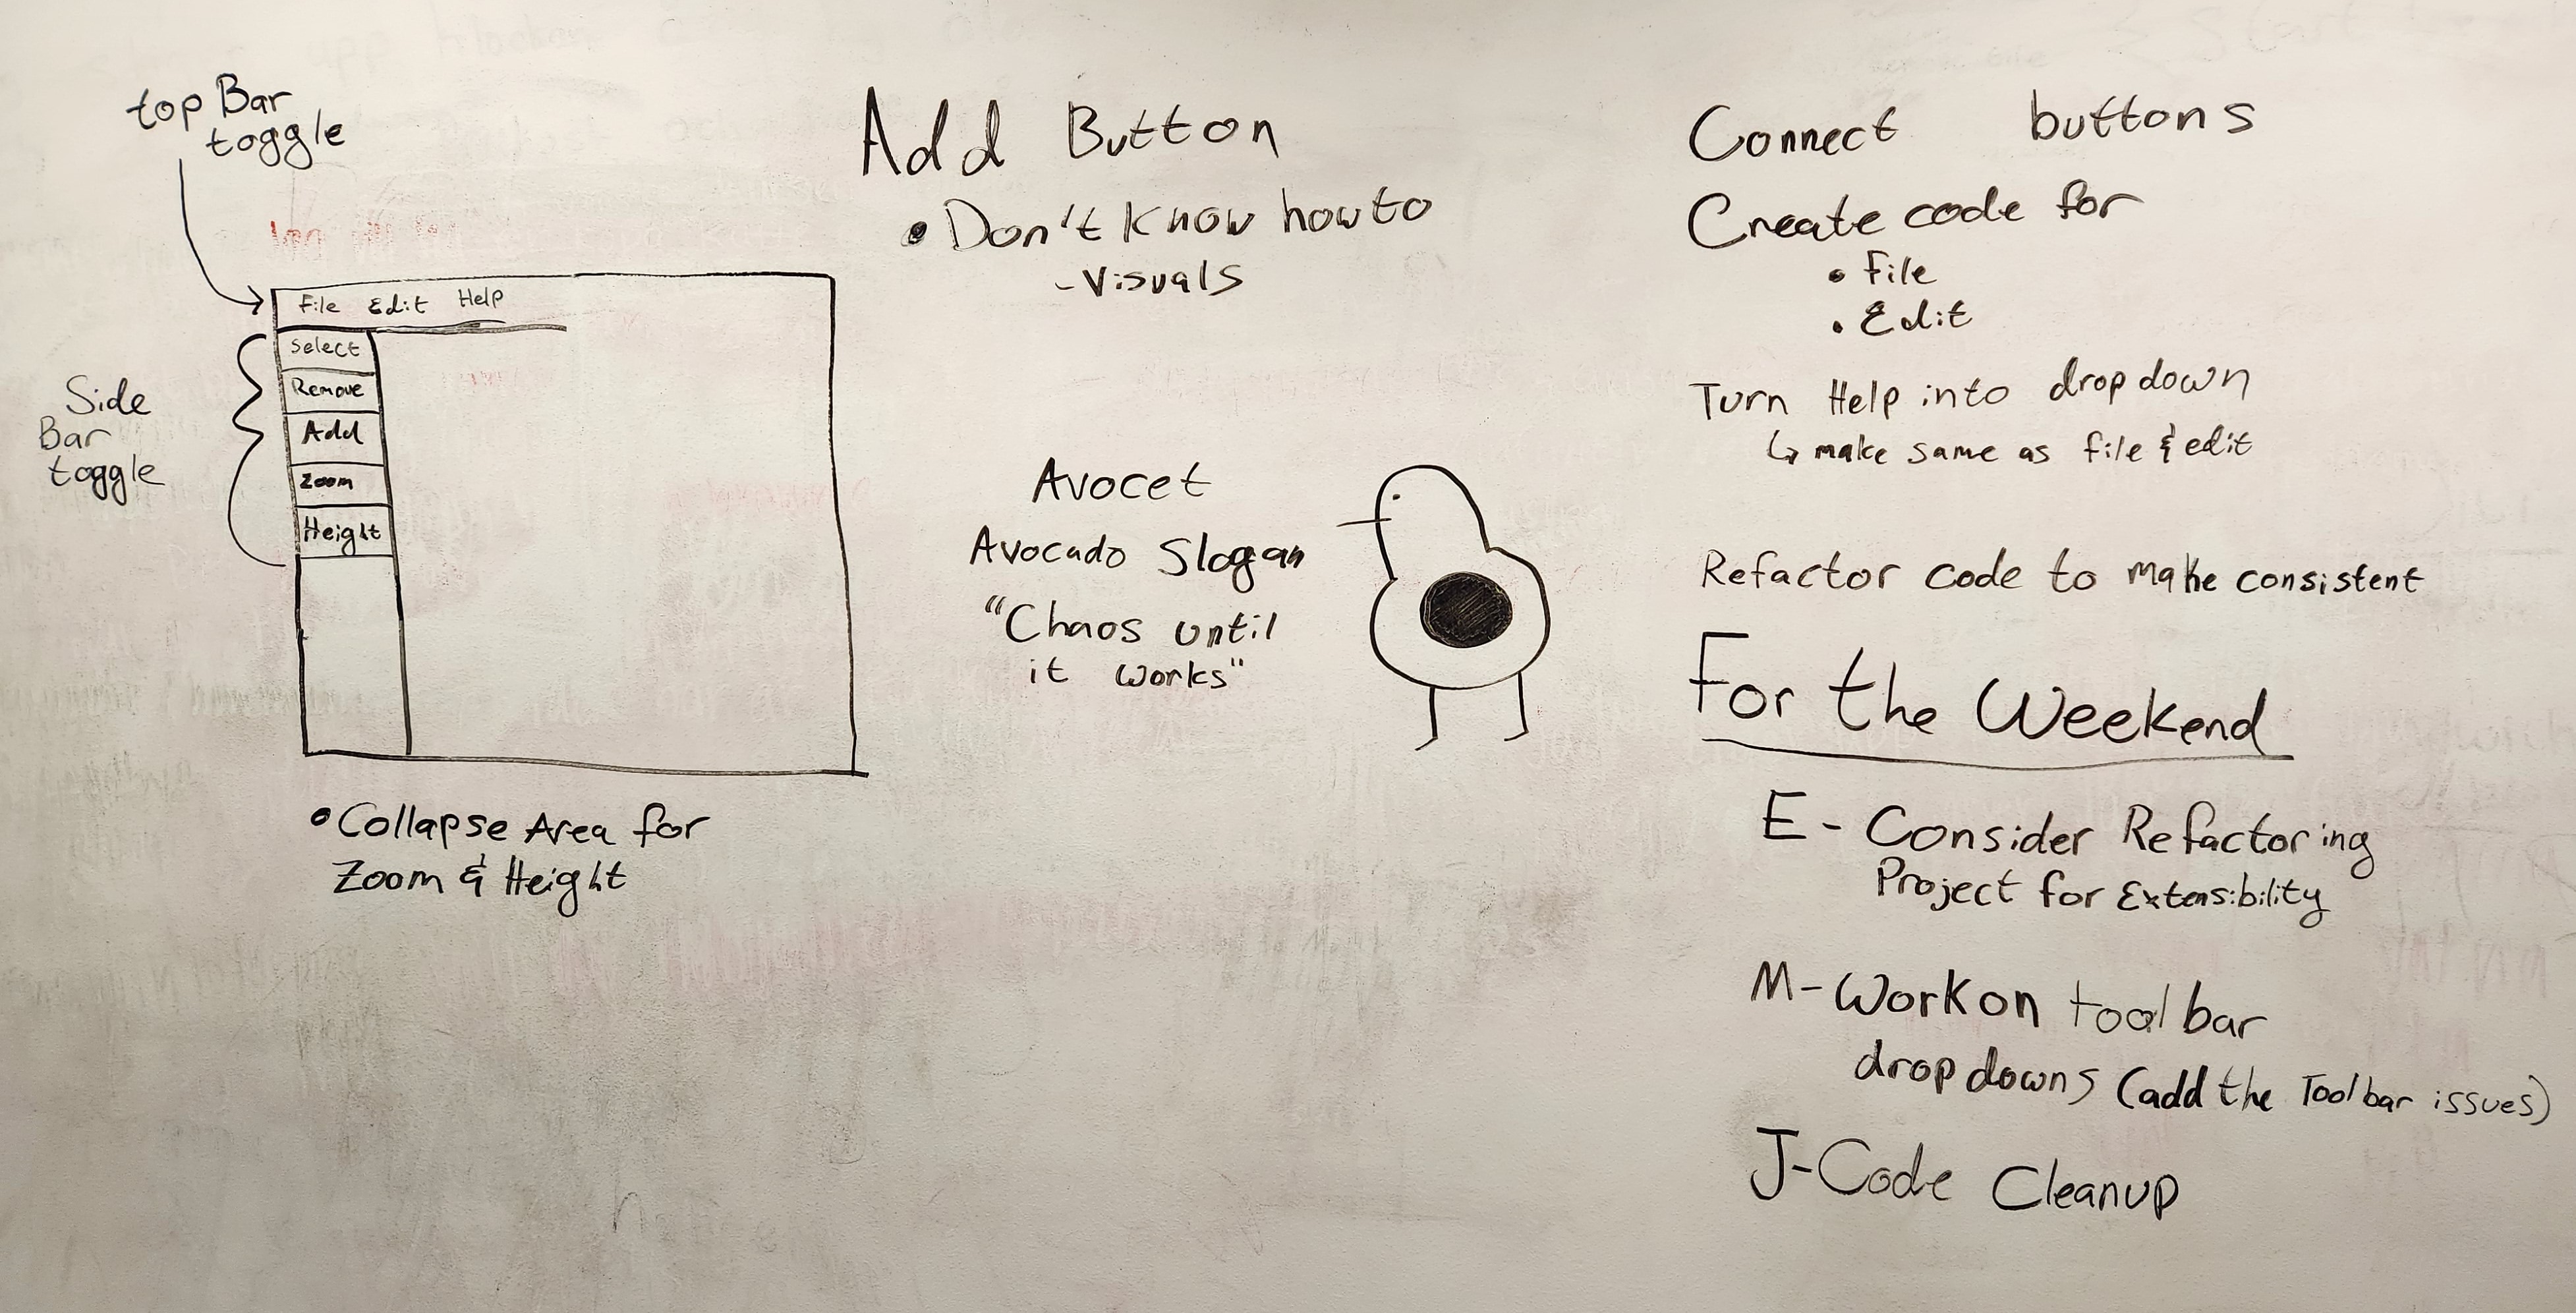 top Bar
toggle
File Edit Help
Select
Remove
Add
Zoom
Height
Side
Bar
toggle
• Collapse Area for
Zoom & Height
Add Button
• Don't know how to
- Visuals
Avocet
Avocado Slogan
"Chaos until
it works"
Connect buttons
Create code for
• File
• Edit
Turn Help into dropdown
↳ make same as file & edit
Refactor code to make consistent
For the Weekend
E - Consider Refactoring
Project for Extensibility
M - Work on toolbar
dropdowns (add the Toolbar issues)
J - Code Cleanup